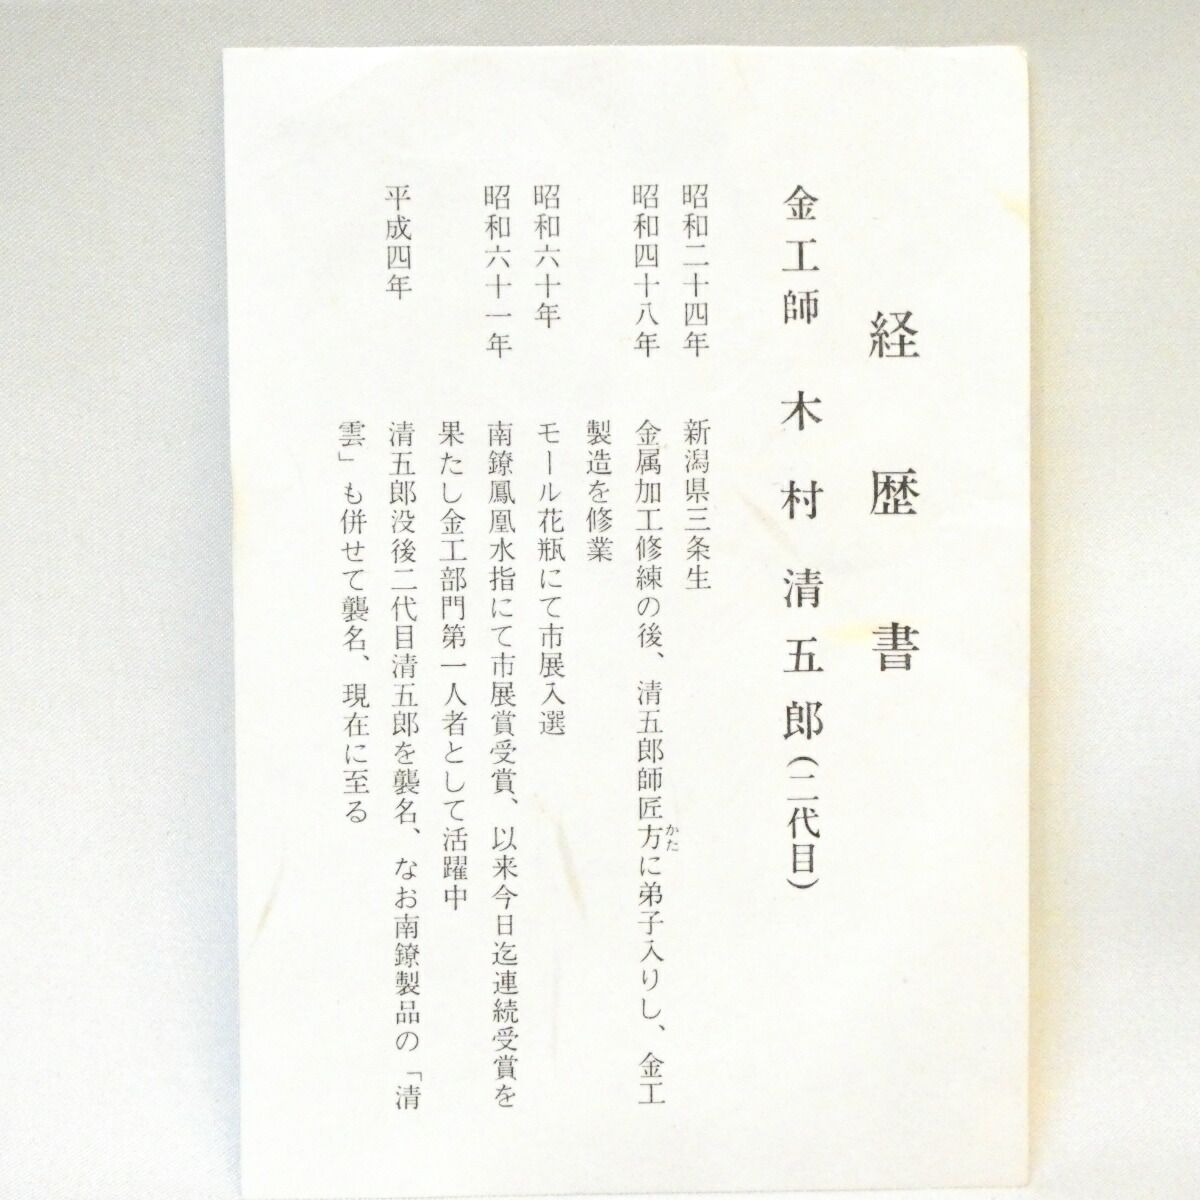 経歴書
金工師 木村清五郎(二代目)
昭和二十四年 新潟県三条生
昭和四十八年 金属加工修練の後、清五郎師匠方に弟子入りし、金工
かた
製造を修業
昭和六十年 モール花瓶にて市展入選
昭和六十一年 南鐐鳳凰水指にて市展賞受賞、以来今日迄連続受賞を
果たし金工部門第一人者として活躍中
平成四年 清五郎没後二代目清五郎を襲名、なお南鐐製品の「清
雲」も併せて襲名、現在に至る